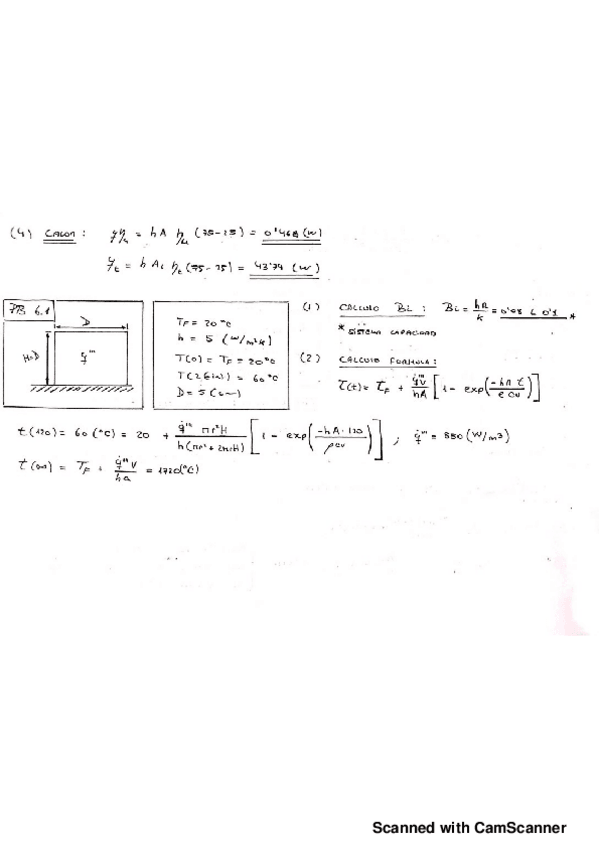 (4) CALOR : q̇η/4 = hA η/4 (75-25) = 0'468 (W)
q̇t = h At ηt (75-25) = 43'74 (W)
PB 6.1
D
H=D
q'''
TF = 20 °C
h = 5 (W/m²K)
T(0) = TF = 20°C
T(2 min) = 60°C
D = 5 (cm)
(1) CALCULO Bi : Bi = hR/k = 0'08 < 0'1 *
* SISTEMA CAPACIDAD
(2) CALCULO FORMULA :
T(t) = TF + q'''V/hA [1 - exp(-hA t/ρcV)]
t(120) = 60 (°C) = 20 + q''' πr²H/h(πr²+2πrH) [1 - exp(-hA·120/ρcV)] ; q''' = 880 (W/m3)
t(∞) = TF + q'''V/hA = 1720(°C)
Scanned with CamScanner